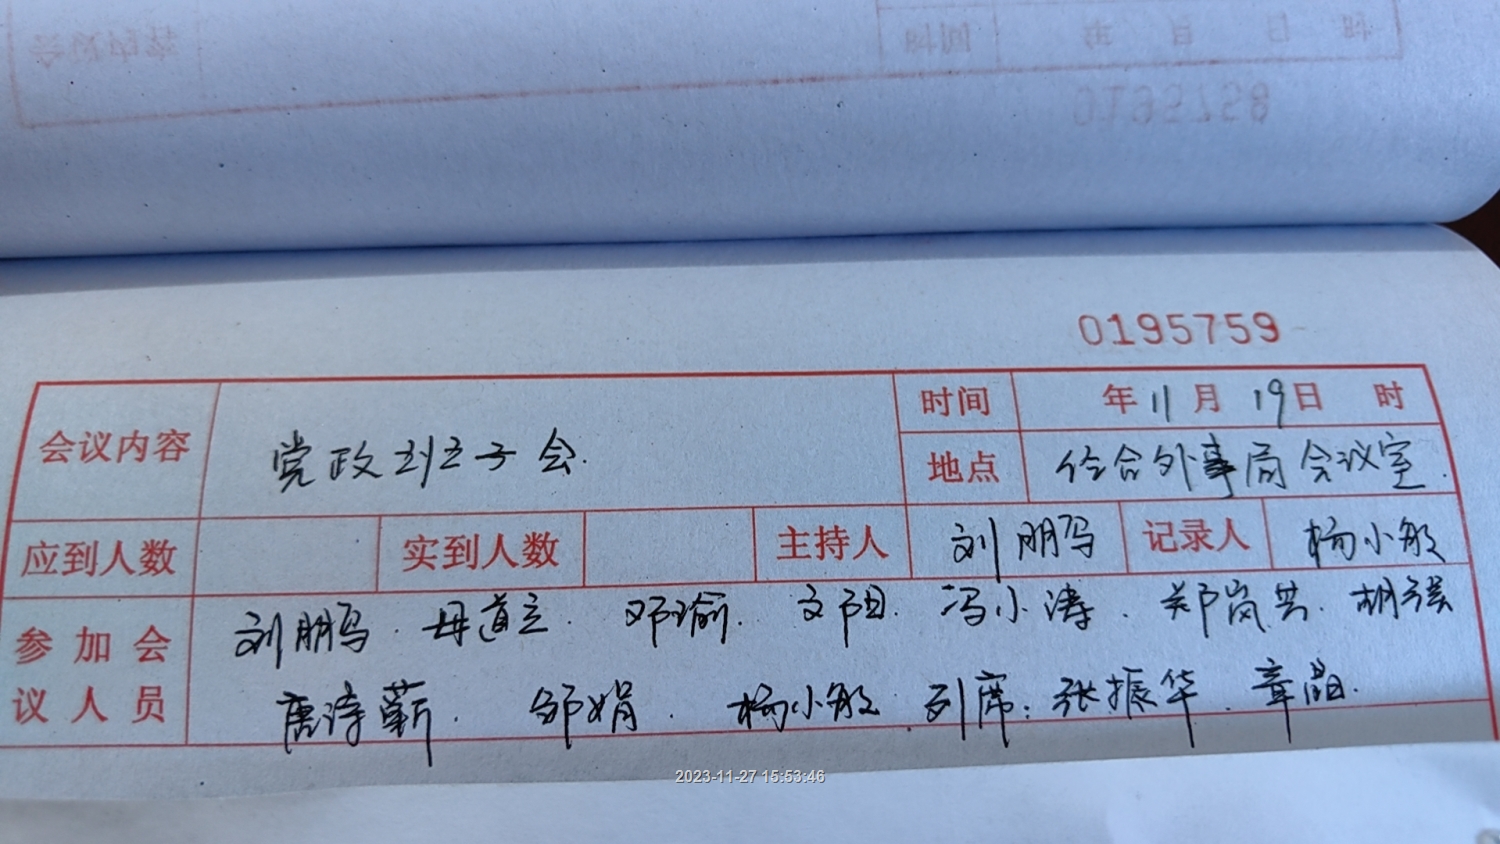 时间 年 月 日 时
0195758
0195759
会议内容 党政班子会. 时间 年11月19日 时
地点 综合外事局会议室.
应到人数 实到人数 主持人 刘朋写 记录人 杨小敏
参加会 刘朋写. 毋道立. 邓瑜. 文阳. 冯小涛. 郑岗芸. 胡强
议人员 唐诗蕲. 邹娟. 杨小敏. 列席:张振华. 章晶.
2023-11-27 15:53:46